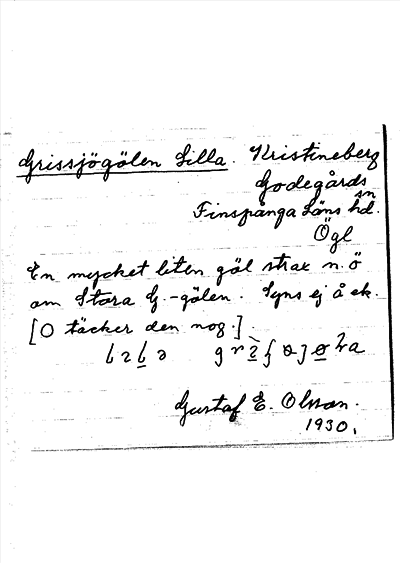 Grissjögölen Lilla. Kristineberg
Godegårds
sn
Finspånga Läns hd.
Ögl
En mycket liten göl strax n.ö
om Stora G.-gölen. Syns ej å ek.
[O täcker den nog.]
Gustaf E. Olsson.
1930.